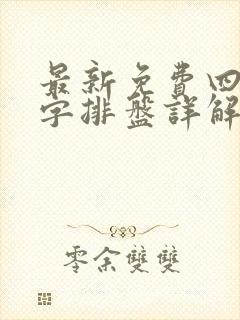 最新免費四
字排盤詳解
零余雙雙